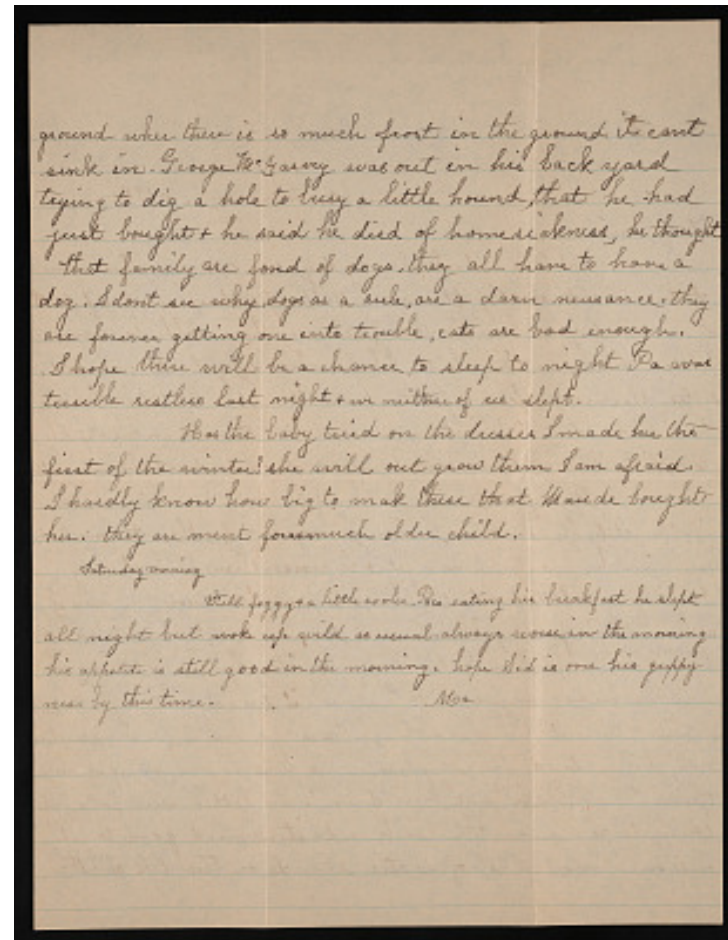 ground when there is so much frost in the ground it cant
sink in. George McGarvy was out in his back yard
trying to dig a hole to bury a little hound, that he had
just bought & he said he died of homesickness, he thought
that family are fond of dogs, they all have to have a
dog. I dont see why, dogs as a rule, are a darn neusance. they
are forever getting one into trouble, cats are bad enough.
I hope there will be a chance to sleep to night Pa was
terrible restless last night & we neither of us slept.
Has the baby tried on the dresses I made her the
first of the winter? she will out grow them I am afraid.
I hardly know how big to make these that Maude bought
her. they are ment for much older child.
Saturday morning
Still foggy & a little cooler. Pa eating his breakfast he slept
all night but woke up wild as usual always worse in the morning
his appetite is still good in the morning. hope Sid is over his
ness by this time. Ma